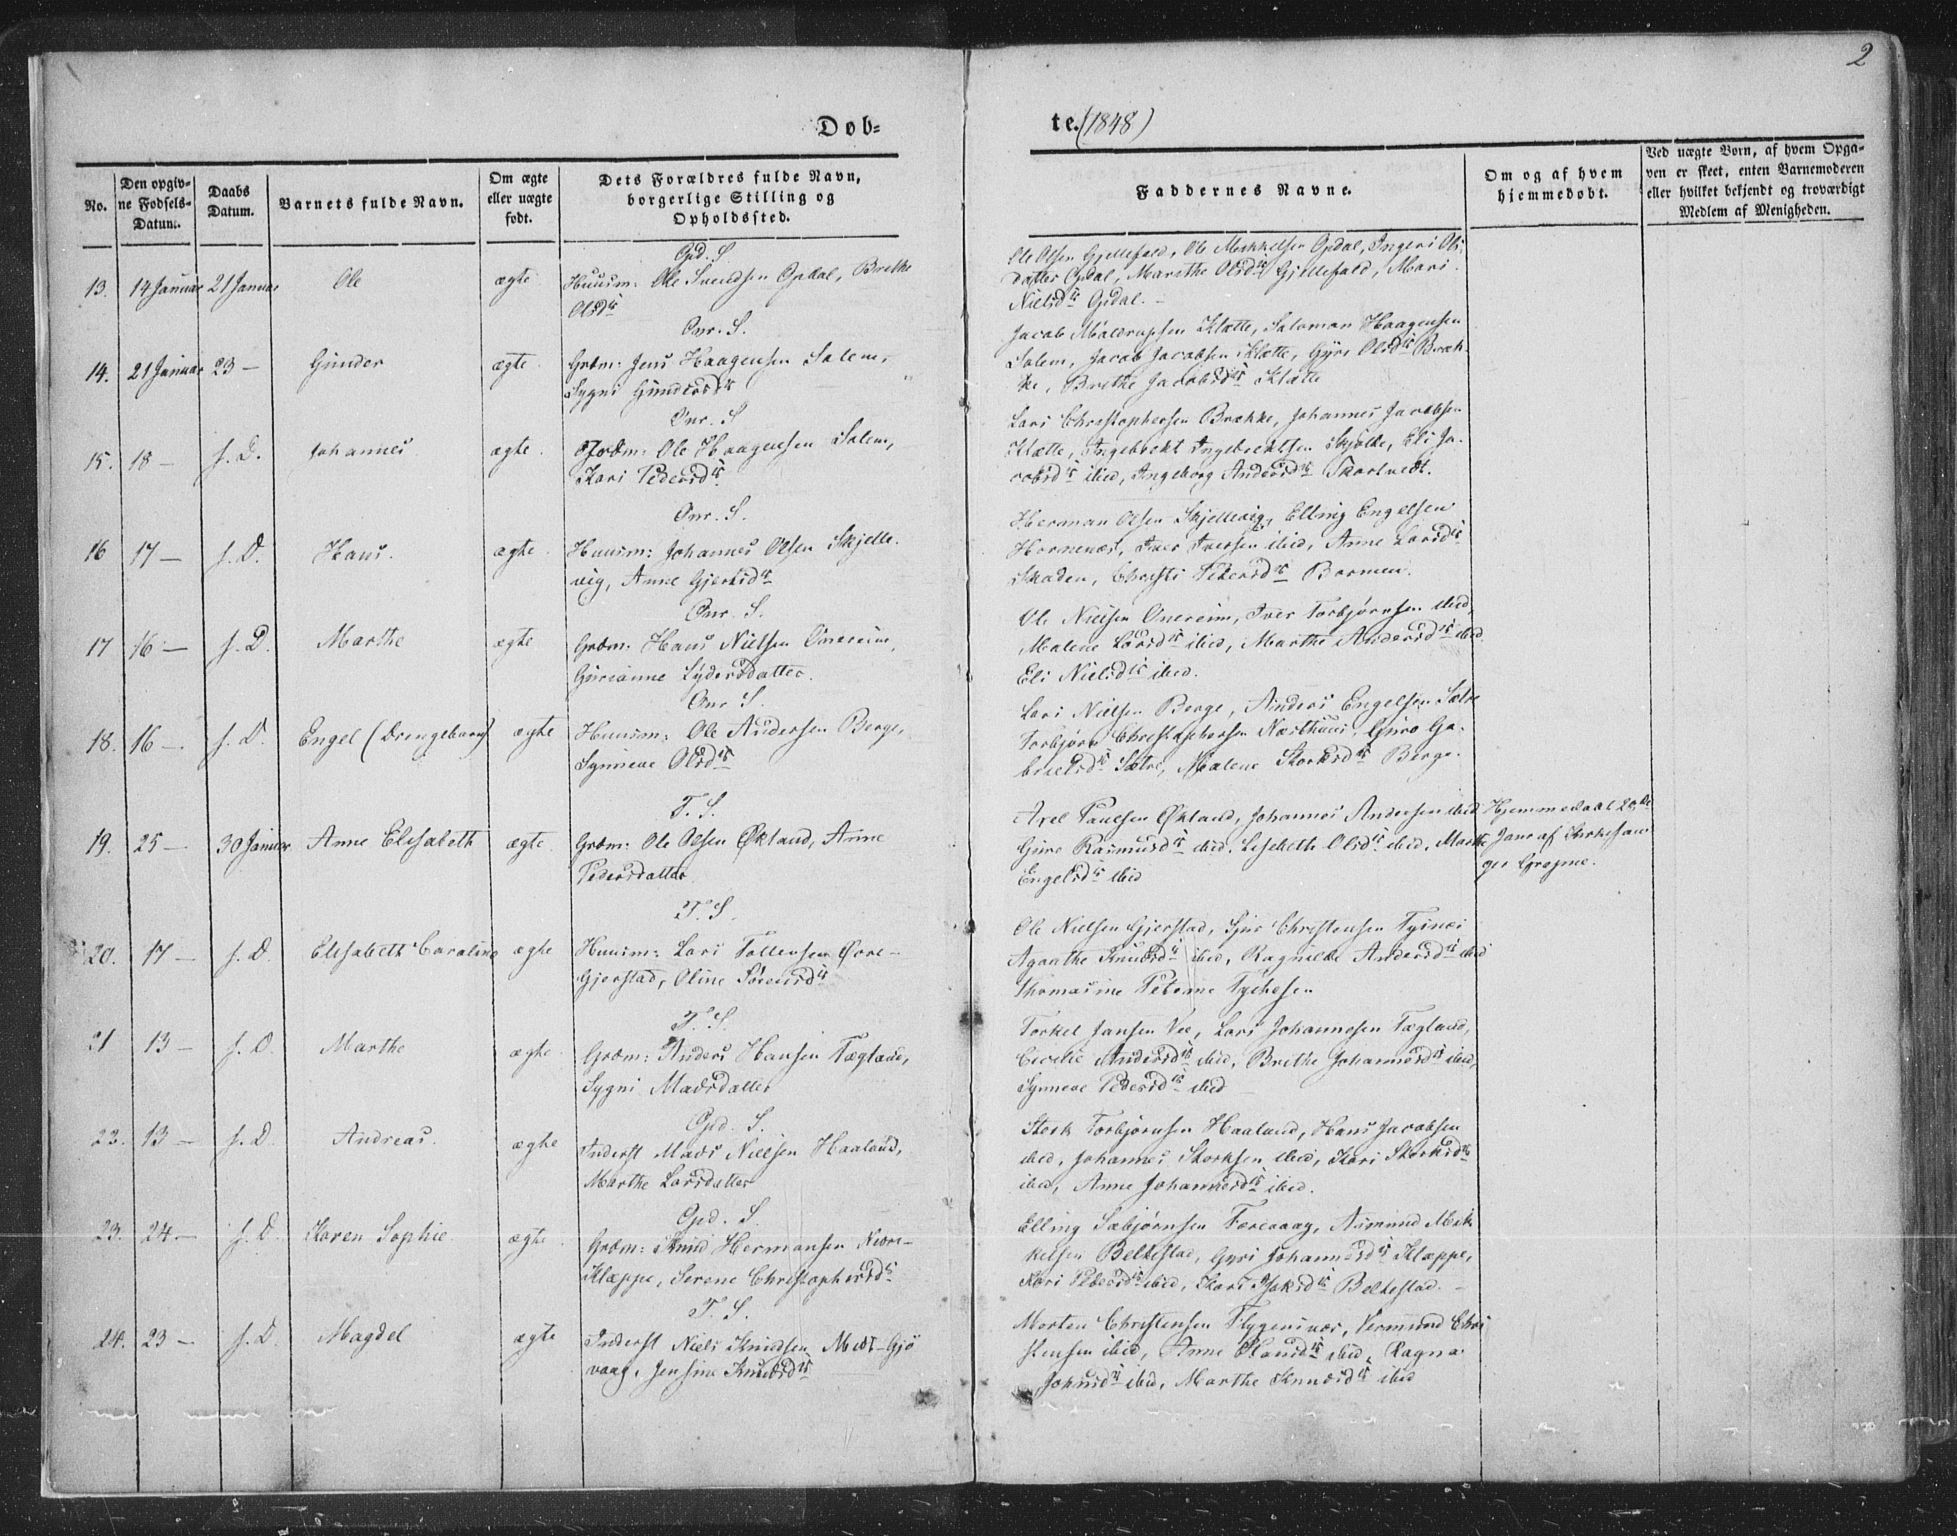 2
Døb-
te. (1848)
No.
Den opgiv-
ne Fødsels-
Datum.
Daabs
Datum.
Barnets fulde Navn.
Om ægte
eller uægte
født.
Dets Forældres fulde Navn,
borgerlige Stilling og
Opholdssted.
Faddernes Navne.
Om og af hvem
hjemmedøbt.
Ved uægte Børn, af hvem Opga-
ven er skeet, enten Barnemoderen
eller hvilket bekjendt og troværdigt
Medlem af Menigheden.
Opd. S
13. 14 Januar 21 Januar Ole ægte Huusm: Ole Svendsen Opdal, Brithe
Olsd.
Ole Olsen Gjellefald, Ole Mikkelsen Opdal, Ingeri Ols-
datter Opdal, Marithe Olsd. Gjellefald, Mari
Nielsd. Opdal. –
Onr. S.
14. 21 Januar 23 – Gunder ægte Grdm: Jens Haagensen Salem,
Sygni Gundersd.
Jacob Klætte, Salomon Haagensen
Salem, Jacob Jacobsen Klætte, Gyri Olsd. Bræk-
ke, Brithe Jacobsd. Klætte
Onr. S
15. 18 – s. D. Johannes ægte Grdm: Ole Haagensen Salem,
Kari Pedersd.
Lars Christophersen Brække, Johannes Jacobsen
Klætte, Ingebrekt Ingebrektsen Skjolde, Eli Ja-
cobsd. ibid, Ingeborg Andersd. Skartvedt.
Onr. S.
16 17 – s. D. Hans. ægte Huusm: Johannes Olsen Skjelle-
vig, Anne Gjertsd.
Herman Olsen Skjellevig, Elling Engelsen
Hermenæs, Iver Iversen ibid, Anne Larsd.
Skaden, Christi Pedersd. Barmen.
Onr. S.
17 16 – s. D. Marthe ægte Grdm: Hans Nielsen Onereim,
Gurianne Lydersdatter.
Ole Nielsen Onereim, Iver Torbjørnsen ibid,
Malene Larsd. ibid, Marthe Andersd. ibid
Eli Nielsd. ibid.
Onr S.
18. 16 – s. D. Engel (Drengebarn) ægte Huusm: Ole Andersen Berge,
Synneve Olsd.
Lars Nielsen Berge, Anders Engelsen Sætre
Torbjørn Christophersen Nørthuus, Guro Ga-
brielsd. Sætre, Malene Storksd. Berge.
T. S.
19. 25 – 30 Januar Anne Elisabeth ægte Grdm: Ole Olsen Økland, Anne
Pedersdatter
Axel Paulsen Økland, Johannes Andersen ibid
Guro Rasmusd. ibid, Lisebeth Olsd. ibid, Marthe
Engelsd. ibid
Hjemmedøbt 26de
Janr af Kirkesan-
ger Gregme.
T. S.
20. 17 – s. D. Elisabeth Caroline ægte Huusm: Lars Tollevsen Øvre-
Gjerstad, Oline Sørensd.
Ole Nielsen Gjerstad, Sjur Christensen Tysnæs
Agaathe Knudsd. ibid, Ragnilde Andersd. ibid
Thomasine Petrone Tychesen
T. S.
21 13 – s. D. Marthe ægte Grdm: Anders Hansen Tægland,
Sygni Madsdatter
Torkel Jansen Vee, Lars Johannesen Tægland,
Cecilie Andersd. ibid, Brithe Johannesd. ibid,
Synneve Pedersd. ibid
Opd. S.
23. 13 – s. D Andreas. ægte Inderst Mads Nielsen Haaland,
Marthe Larsdatter
Stork Torbjørnsen Haaland, Hans Jacobsen
ibid, Johannes Storksen ibid, Kari Storksd.
ibid, Anne Johannesd. ibid.
Opd. S.
23. 24 – s. D. Karen Sophie. ægte Grdm: Knud Hermansen Nedre-
Klæppe, Serene Christophersd.
Elling Sæbjørnsen Færevaag, Asmund Mik-
kelsen Beltestad, Gyri Johannesd. Klæppe,
Kari Pedersd. ibid, Kari Isaksd. Beltestad. –
T. S.
24. 23 – s. D. Magdel ægte Inderst Niels Knudsen Midt-Gjø
vaag, Jensine Knudsd.
Morten Christensen Flygensnæs, Vermund Chri
stensen ibid, Anne Hansd. ibid, Ragna
Johnsd. ibid, Marthe Knudsd. ibid